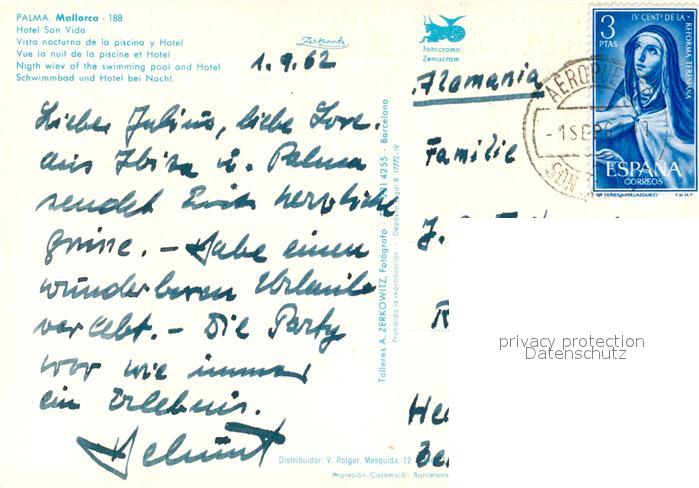 PALMA. Mallorca - 188
Hotel Son Vida
Vista nocturna de la piscina y Hotel
Vue la nuit de la piscine et Hotel
Nigth wiev of the swimming pool and Hotel
Schwimmbad und Hotel bei Nacht
Zerkowitz
Fotocromo
Zemacrom
1.9.62
Lieber Julius, liebe Lore.
aus Ibiza u. Palma
sendet Euch herzliche
Grüsse. - Habe einen
wunderbaren Urlaub
verlebt. - Die Party
war wie immer
ein Erlebnis.
Helmut
Talleres A. ZERKOWITZ, Fotógrafo - 4255 - Barcelona
Prohibida la reproducción - Depósito Legal B. 17772-IV
Distribuidor: V. Rotger, Mesquida, 12
Impresión: Casamajó - Barcelona
Alemania
Familie
J.
3
PTAS
IV CENTº DE LA REFORMA TERESIANA
ESPAÑA
CORREOS
AEROPUERTO
-1 SEP
SON
privacy protection
Datenschutz